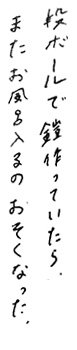 段ボールで鎧作っていたら、
またお風呂入るのおそくなった。